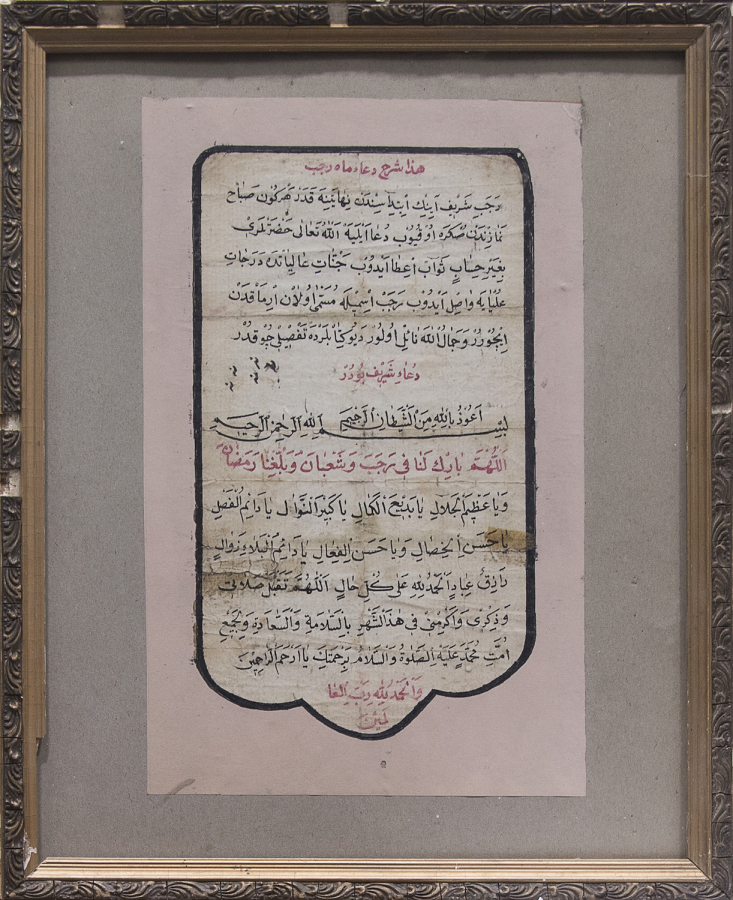 هذا شرح دعاء ماه رجب
رَجَبِ شَرِيف آيِنِكْ اِبْتِدَاسِنْدَنْ نِهَايَتِينَه قَدَرْ هَرْكُونْ صَبَاح
نَمَازِنْدَنْ صُكْرَه اُوقُيُوبْ دُعَا اَيْلَيَه اَللّٰهُ تَعَالٰى حَضْرَتْلَرِي
بِغَيْرِ حِسَابٍ ثَوَابْ اِعْطَا اَيدُوبْ جَنَّاتِ عَالِيَاتْدَه دَرَجَاتِ
عُلْيَايَه وَاصِلْ اَيْدُوبْ رَجَبْ اِسْمِيلَه مُسَمّٰى اُولاَنْ اِرْمَاقْدَنْ
اِيچُورُرْ وَجَمَالُ اللّٰه نَائِلْ اُولُورْ دِيُو كِتَابْلَرْدَه تَفْصِيلِى چُوقْدُرْ
دُعَاءِ شَرِيفْ بُودُرْ
اَعُوذُ بِاللّٰهِ مِنَ الشَّيْطَانِ الرَّجِيمِ
بِسْمِ اللّٰهِ الرَّحْمٰنِ الرَّحِيمِ
اَللّٰهُمَّ بَارِكْ لَنَا فِى رَجَبَ وَشَعْبَانَ وَبَلِّغْنَا رَمَضَانَ
وَيَا عَظِيمَ الْجَلَالِ يَا بَدِيْعَ الْكَمَالِ يَا كَبِيرَ النَّوَالِ يَا دَائِمَ الْفَضْلِ
يَا حَسَنَ الْخِصَالِ وَيَا حَسَنَ الْفِعَالِ يَا دَائِمَ الْبَلَا وَزَوَالٍ
رَازِقُ عِبَادٍ اَلْحَمْدُ لِلّٰهِ عَلَى كُلِّ حَالٍ اَللّٰهُمَّ تَقَبَّلْ صَلَاتِى
وَذِكْرِى وَاَكْرِمْنِى فِى هٰذَا الشَّهْرِ بِالسَّلَامَةِ وَالسَّعَادَةِ وَلِجَمِيْعِ
اُمَّتِ مُحَمَّدٍ عَلَيْهِ الصَّلٰوةُ وَالسَّلَامُ بِرَحْمَتِكَ يَا اَرْحَمَ الرَّاحِمِيْنَ
وَالْحَمْدُ لِلّٰهِ رَبِّ الْعَا
لَمِيْنَ